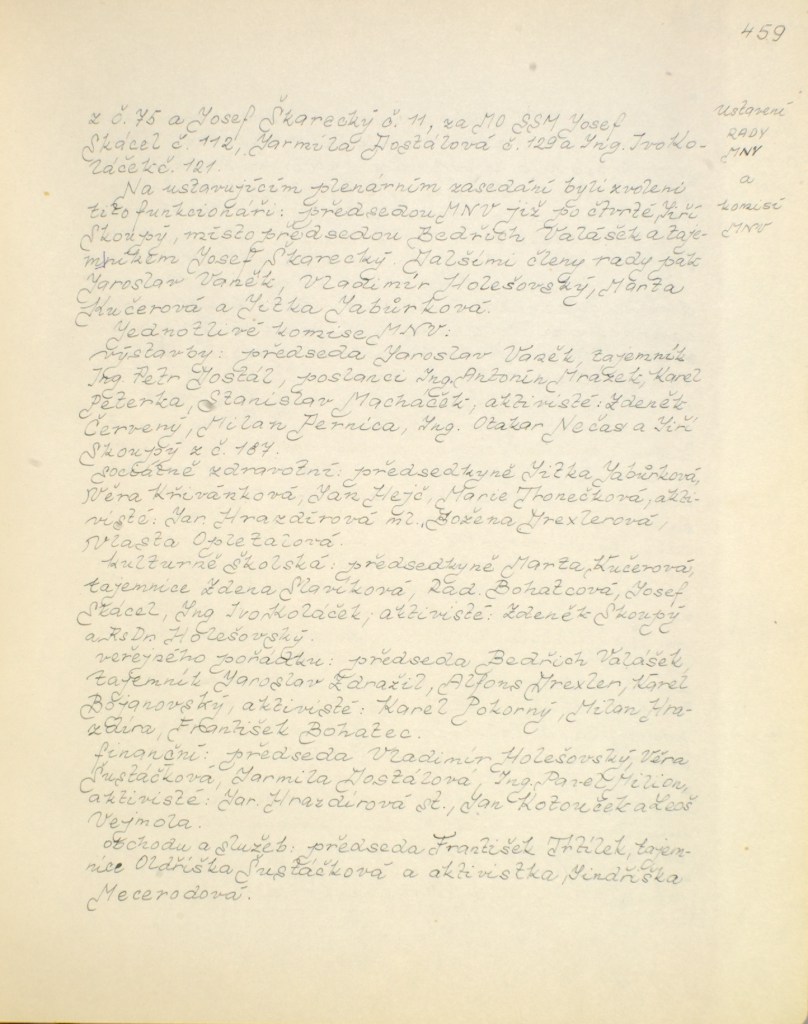 459
Ustavení
RADY
MNV
a
komisí
MNV
z č. 75 a Josef Škarecký č. 11, za MO SSM Josef
Skácel č. 112, Jarmila Dostálová č. 129 a Ing. Ivo Ko-
láček č. 121.
Na ustavujícím plenárním zasedání byli zvoleni
tito funkcionáři: předsedou MNV již po čtvrté Jiří
Skoupý, místopředsedou Bedřich Valášek a taje-
mníkem Josef Škarecký. Dalšími členy rady pak
Jaroslav Vaněk, Vladimír Holešovský, Marta
Kučerová a Jitka Jabůrková.
Jednotlivé komise MNV:
výstavby: předseda Jaroslav Vaněk, tajemník
Ing. Petr Dostál, poslanci Ing. Antonín Mražek, Karel
Peterka, Stanislav Macháček, aktivisté: Zdeněk
Červený, Milan Pernica, Ing. Otakar Nečas a Jiří
Skoupý z č. 187.
sociálně zdravotní: předsedkyně Jitka Jabůrková,
Věra Křivánková, Jan Hejč, Marie Tronečková, akti-
visté: Jar. Hrazdírová ml., Božena Drexlerová,
Vlasta Opletalová.
kulturně školská: předsedkyně Marta Kučerová,
tajemnice Zdena Slavíková, Rad. Bohatcová, Josef
Skácel, Ing Ivo Koláček, aktivisté: Zdeněk Skoupý
a RsDr. Holešovský.
veřejného pořádku: předseda Bedřich Valášek,
tajemník Jaroslav Zdražil, Alfons Drexler, Karel
Bojanovský, aktivisté: Karel Pokorný, Milan Hra-
zdíra, František Bohatec.
finanční: předseda Vladimír Holešovský, Věra
Šustáčková, Jarmila Dostálová, Ing. Pavel Milion,
aktivisté: Jar. Hrazdírová st., Jan Kotouček a Leoš
Vejmola.
obchodu a služeb: předseda František Trtílek, tajem-
nice Oldřiška Šustáčková a aktivistka Jindřiška
Mecerodová.